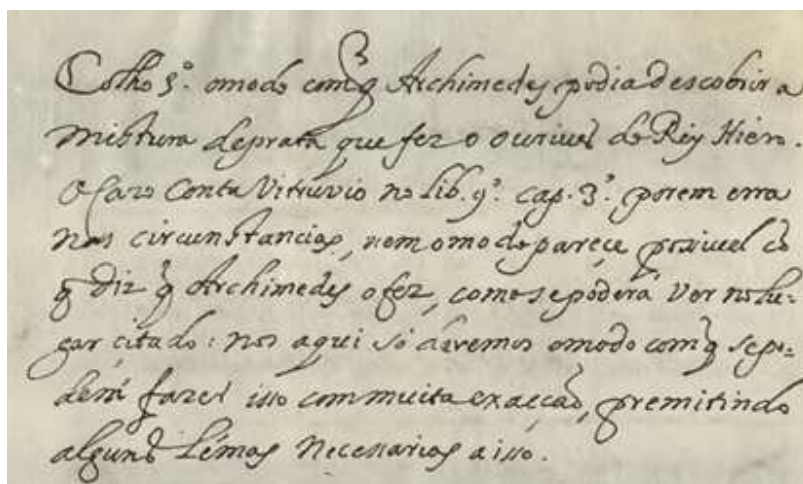 Colho 5º. omodo comq̃ Archimedes podia descobrir a
mistura deprata que fez o ourives de Rey Hiero.
O cazo conta Vitruvio no lib. 9º. cap. 3º. porem erra
nas circunstancias, nem omodo pareçe possivel cõ
q̃ diz q̃ Archimedes ofez, como sepoderá ver nolu-
gar çitado: nos aqui só daremos omodo comq̃ sepo-
derá fazer isso commuita exacção, premitindo
alguns Lémas necessarios a isso.